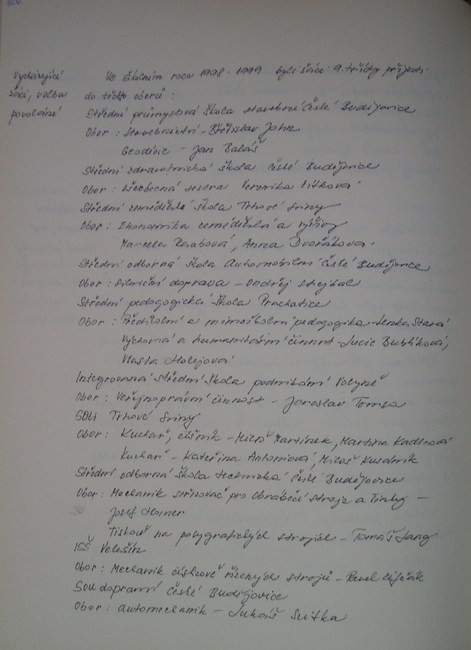 Vycházející
žáci, volba
povolání
Ve školním roce 1998 - 1999 byli žáci 9. třídy přijati
do těchto oborů :
Střední průmyslová škola stavební České Budějovice
Obor : Stavebnictví - Břetislav Jahn
Geodézie - Jan Baláš
Střední zdravotnická škola České Budějovice
Obor : Všeobecná sestra Veronika
Střední zemědělská škola Trhové Sviny
Obor : Ekonomika zemědělství a výživy
Marcela, Anna Dvořáková
Střední odborná škola Automobilní České Budějovice
Obor : Silniční doprava - Ondřej
Střední pedagogická škola Prachatice
Obor : Předškolní a mimoškolní pedagogika - Lenka Stará
Výchovná a humanitární činnost - Lucie,
Vlasta Holejová
Integrovaná střední škola podnikání Volyně
Obor : Veřejnoprávní činnost - Jaroslav Tomsa
SOU Trhové Sviny
Obor : Kuchař, číšník - Miloš Martínek, Martina Kadlecová
Kuchař - Kateřina Antoniová, Miloš
Střední odborná škola technická České Budějovice
Obor : Mechanik seřizovač pro obráběcí stroje a linky -
Josef
Tiskař na polygrafických strojích - Tomáš Lang
ISŠ Velešín
Obor : Mechanik číslicově řízených strojů - Pavel
SOU dopravní České Budějovice
Obor : automechanik - Lukáš Svitka